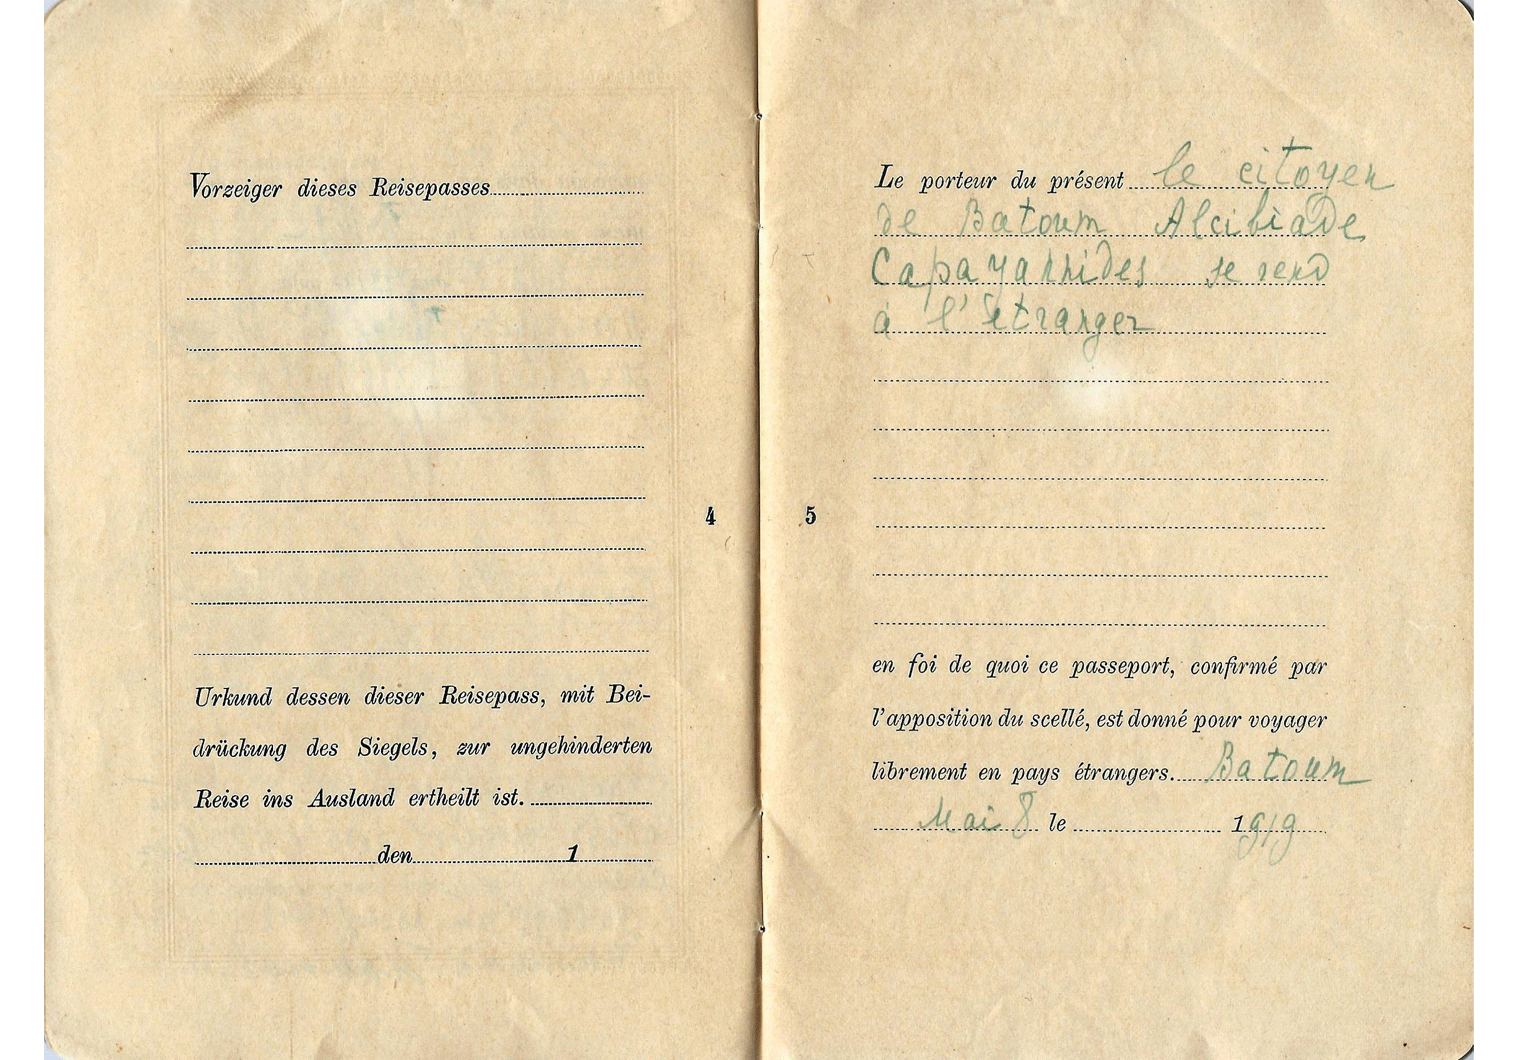 Vorzeiger dieses Reisepasses
Urkund dessen dieser Reisepass, mit Bei-
drückung des Siegels, zur ungehinderten
Reise ins Ausland ertheilt ist.
den 1
4
5
Le porteur du présent le citoyen
de Batoum Alcibiade
Capayannides se rend
à l'étranger
en foi de quoi ce passeport, confirmé par
l'apposition du scellé, est donné pour voyager
librement en pays étrangers. Batoum
Mai 8 le 1919